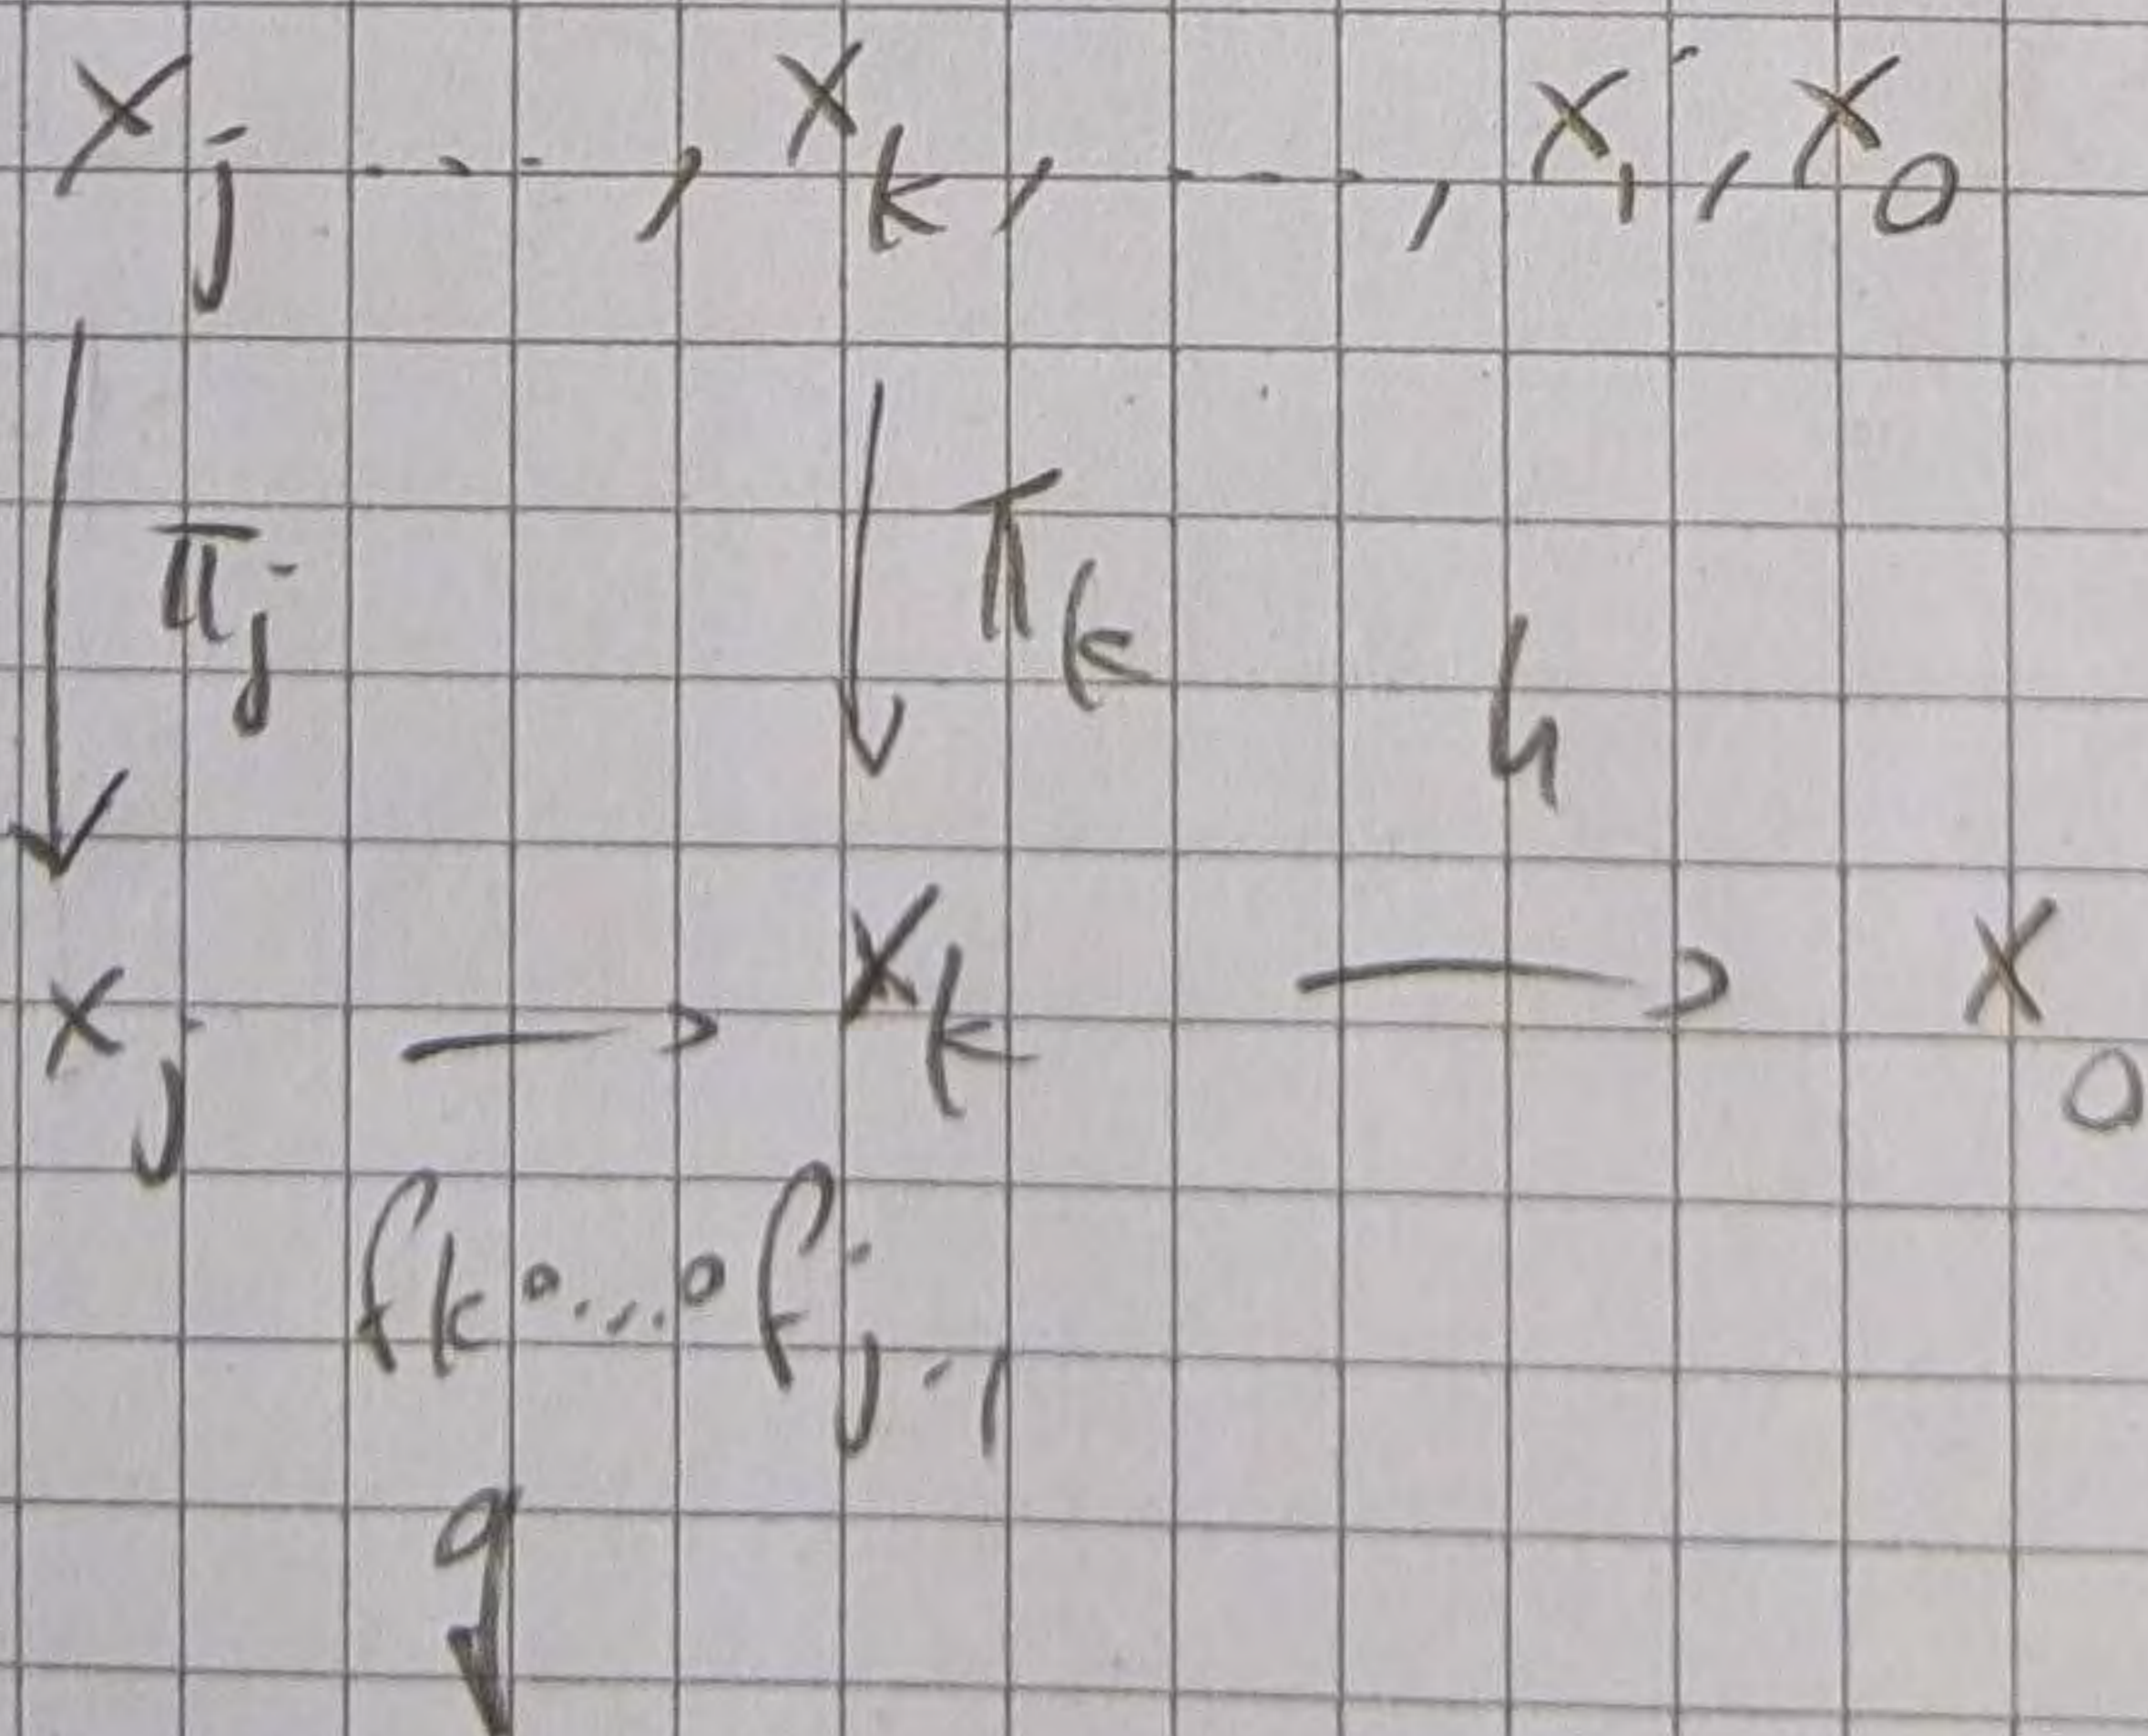 x_j ---, x_k, ---, x_1, x_0
↓ π_j ↓ π_k h
x_j → x_k → x_0
f_k ∘...∘ f_{j-1}
g